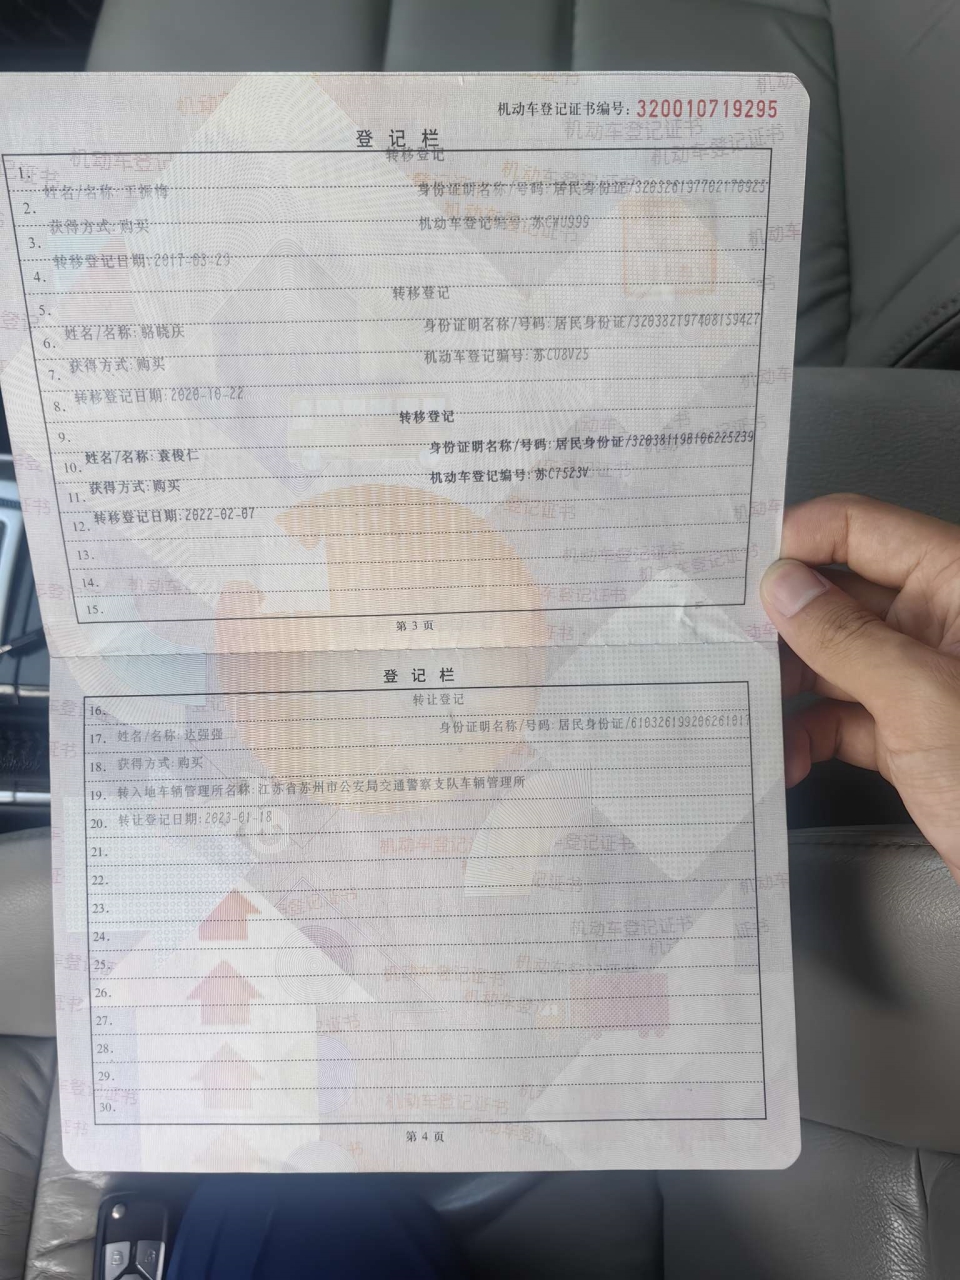 机动车登记证书编号：320010719295
登 记 栏
转移登记
1.
姓名/名称：王振梅 身份证明名称/号码：居民身份证/
2.
获得方式：购买 机动车登记编号：苏CWU999
3.
转移登记日期：2017-03-23
4.
转移登记
5.
姓名/名称：骆晓庆 身份证明名称/号码：居民身份证/320382197408159427
6.
获得方式：购买 机动车登记编号：苏CU8V25
7.
转移登记日期：2020-10-22
8.
转移登记
9.
姓名/名称：袁俊仁 身份证明名称/号码：居民身份证/320381198106225239
10.
获得方式：购买 机动车登记编号：苏C7523V
11.
转移登记日期：2022-02-07
12.
13.
14.
15.
第 3 页
登 记 栏
16. 转让登记
17. 姓名/名称：达强强 身份证明名称/号码：居民身份证/610326199206261017
18. 获得方式：购买
19. 转入地车辆管理所名称：江苏省苏州市公安局交通警察支队车辆管理所
20. 转让登记日期：2023-01-18
21.
22.
23.
24.
25.
26.
27.
28.
29.
30.
第 4 页